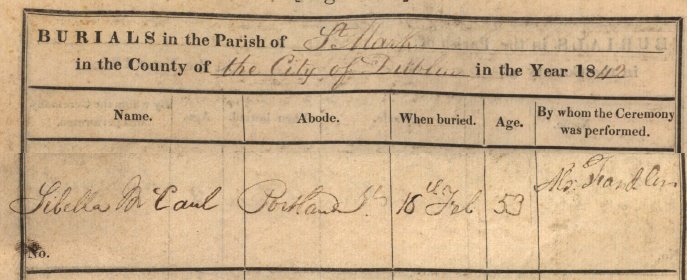 BURIALS in the Parish of St. Mark
in the County of the City of Dublin in the Year 1842
Name. Abode. When buried. Age. By whom the Ceremony was performed.
Sibella Mc Caul Portland St. 16th Feb 53
No.